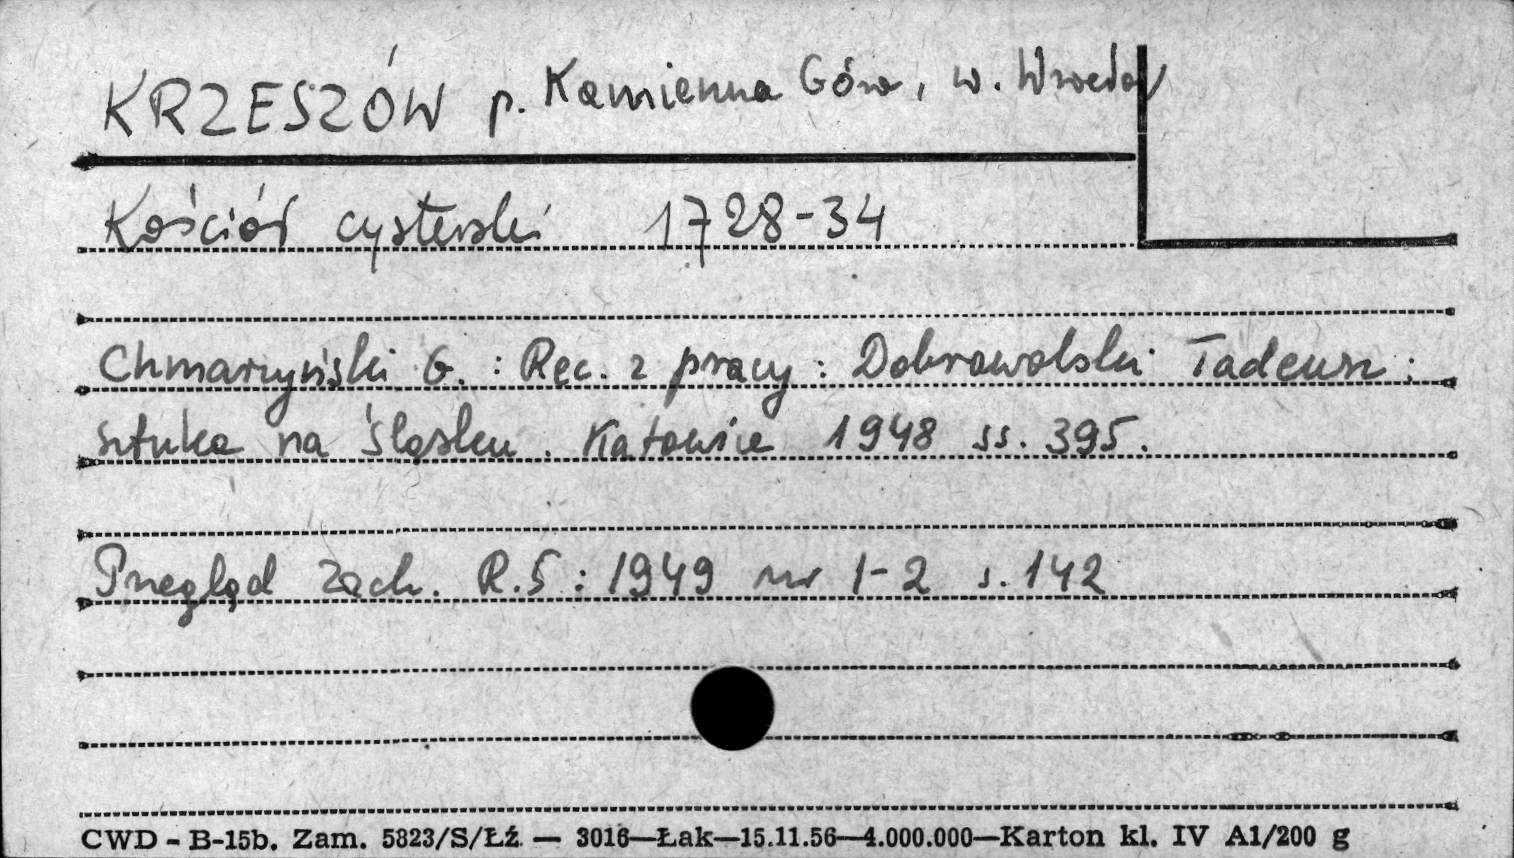 KRZESZÓW p. Kamienna Góra, w. Wrocław
Kościół cysterski 1728-34
Chmarzyński G. : Rec. z pracy : Dobrowolski Tadeusz :
sztuka na Śląsku. Katowice 1948 ss. 395.
Przegląd Zach. R.5 : 1949 nr 1-2 s. 142
CWD - B-15b. Zam. 5823/S/Łź — 3016—Łak—15.11.56—4.000.000—Karton kl. IV A1/200 g